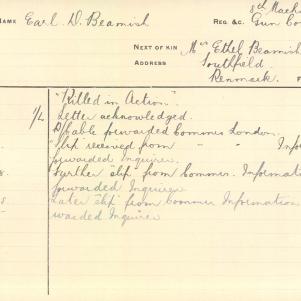 NAME Earl D. Beamish
REG &C. 8th Mach
Gun Co
NEXT OF KIN Mrs Ethel Beamish
ADDRESS Southfield.
Renmark.
"Killed in Action".
1/L Letter acknowledged.
Cable forwarded Commis London.
"Slip" received from " " Info
forwarded Inquirer.
8. Further "slip" from Commis. Informati
forwarded Inquirer
Later "slip" from Commis Information
warded Inquirer